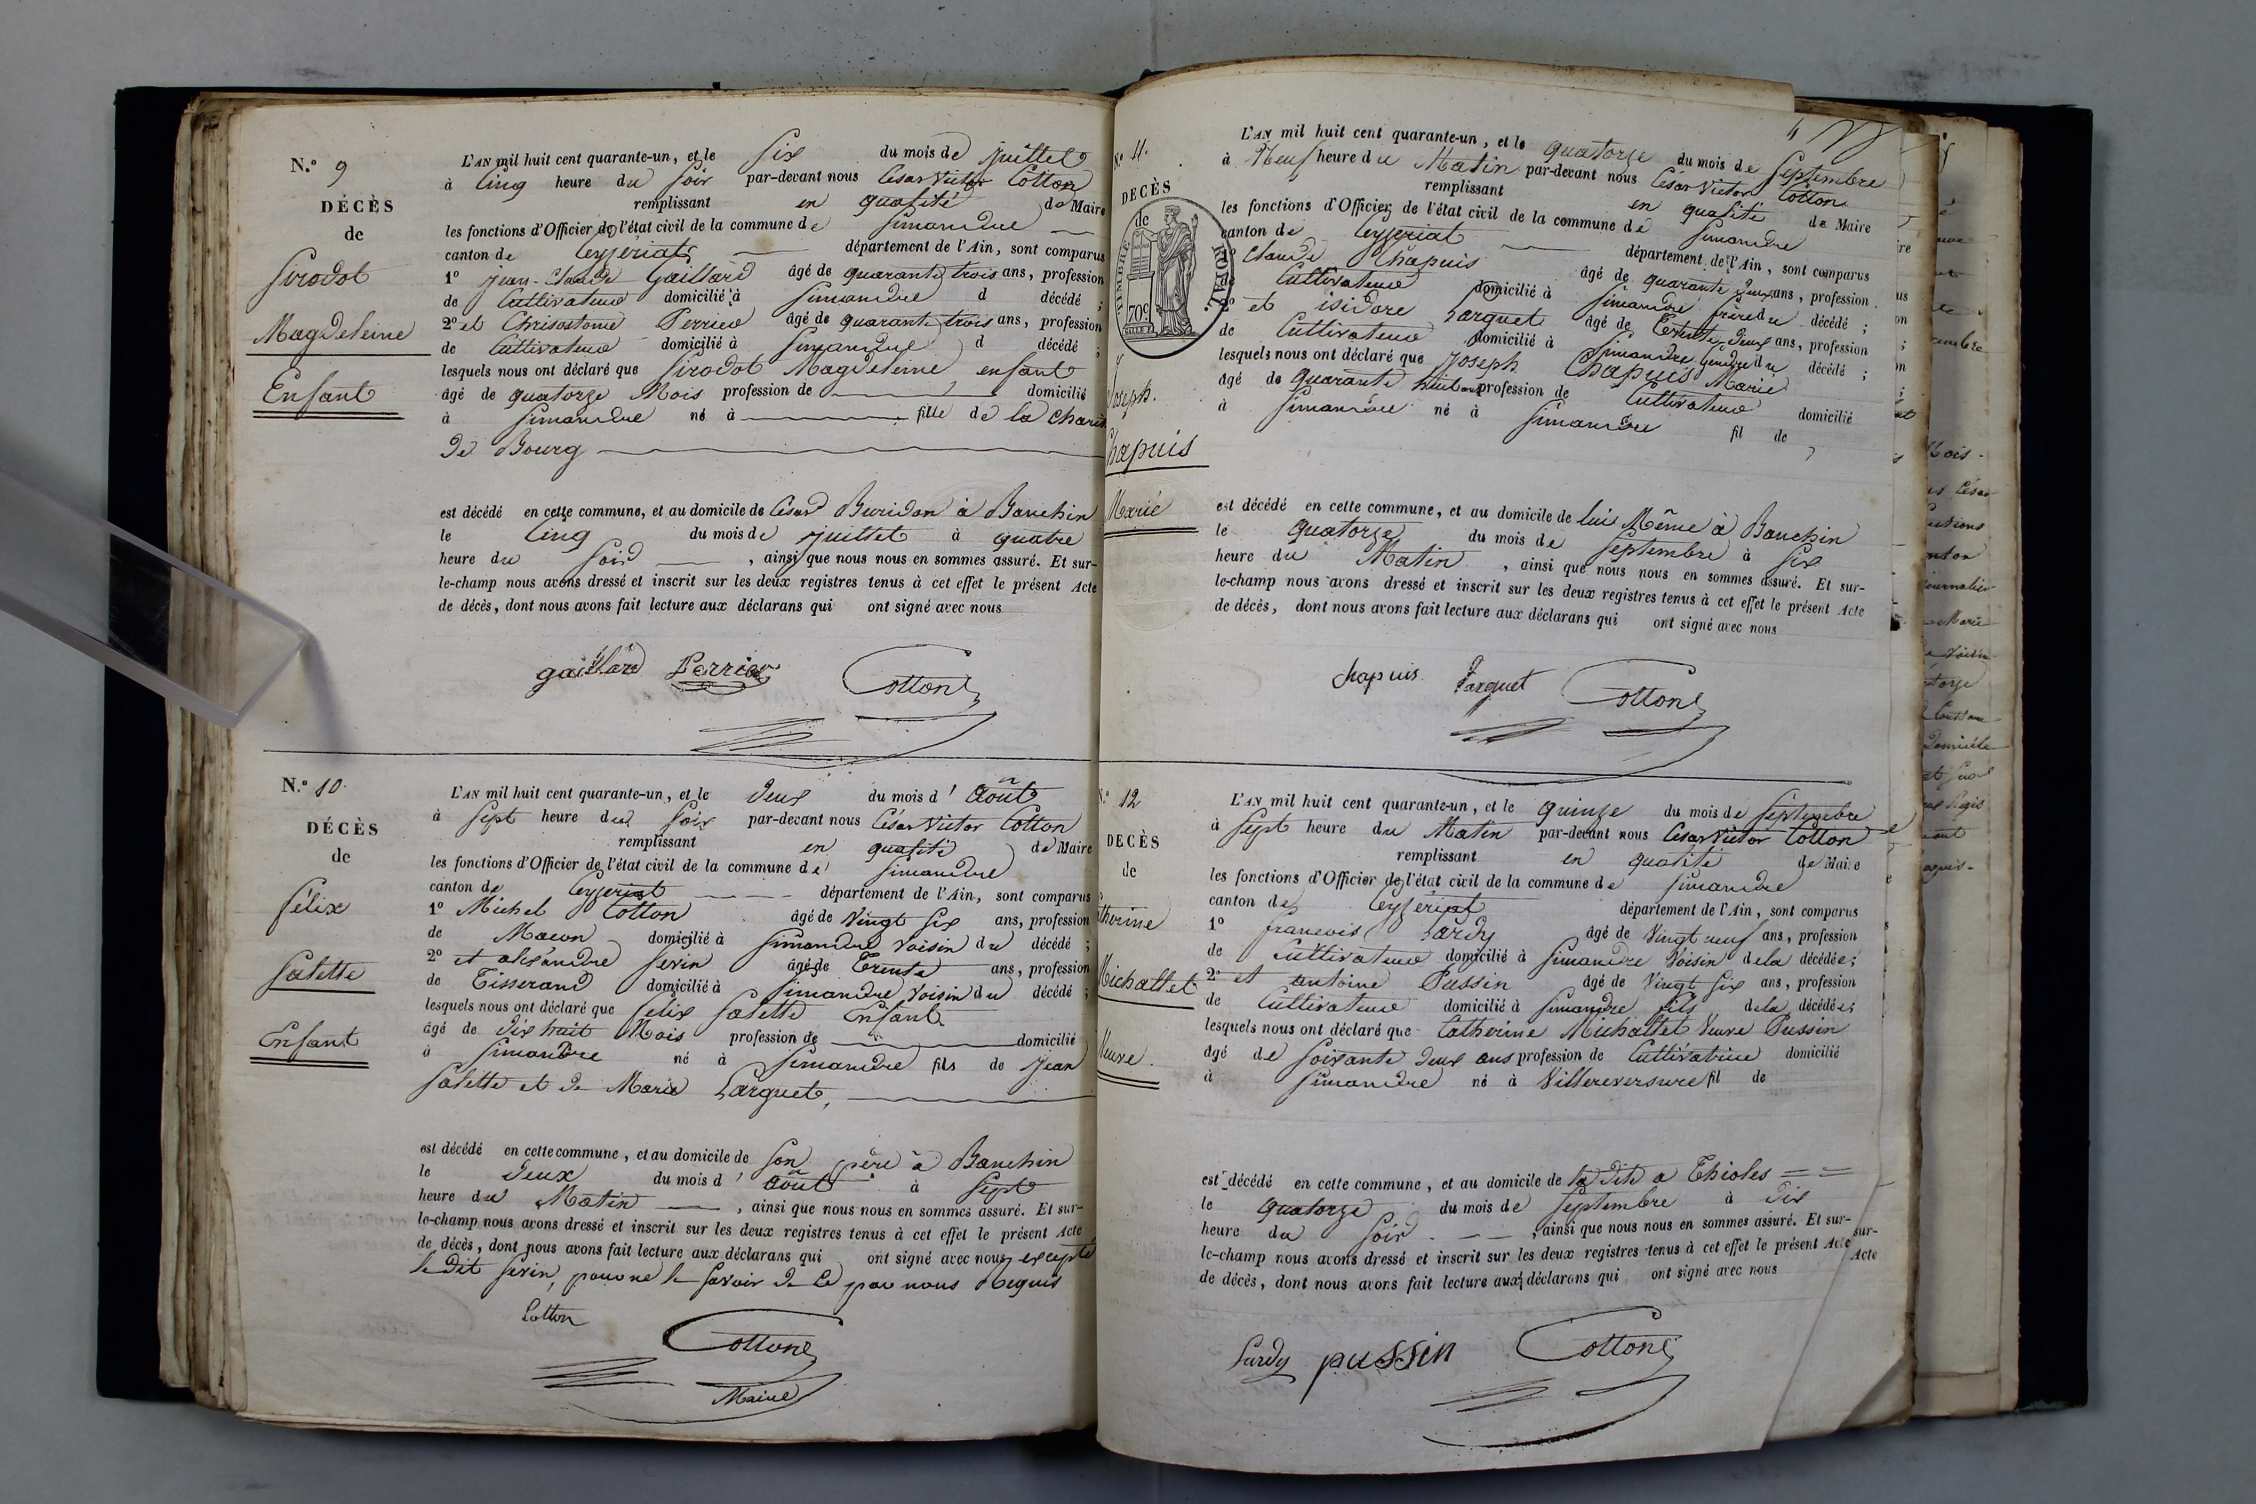 N.º 9
DÉCÈS
de
Sirodot
Magdeleine
Enfant
L'AN mil huit cent quarante-un, et le Six du mois de juillet
à Cinq heure du Soir par-devant nous César Victor Cotton
remplissant en qualité de Maire
les fonctions d'Officier de l'état civil de la commune de Simandre
canton de Ceyzeriat département de l'Ain, sont comparus
1º Jean-Claude Gaillard âgé de quarante trois ans, profession
de Cultivateur domicilié à Simandre d décédé ;
2º et Chrisostome Perrier âgé de quarante trois ans, profession
de Cultivateur domicilié à Simandre d décédé ;
lesquels nous ont déclaré que Sirodot Magdeleine enfant
âgé de quatorze Mois profession de domicilié
à Simandre né à fille de la charité
de Bourg
est décédé en cette commune, et au domicile de César Buridon à Banchin
le Cinq du mois de juillet à quatre
heure du Soir , ainsi que nous nous en sommes assuré. Et sur-
le-champ nous avons dressé et inscrit sur les deux registres tenus à cet effet le présent Acte
de décès, dont nous avons fait lecture aux déclarans qui ont signé avec nous
gaillard Perrier Cotton
N.º 10
DÉCÈS
de
Félix
Salette
Enfant
L'AN mil huit cent quarante-un, et le deux du mois d' Août
à Sept heure du Soir par-devant nous César Victor Cotton
remplissant en qualité de Maire
les fonctions d'Officier de l'état civil de la commune de Simandre
canton de Ceyzeriat département de l'Ain, sont comparus
1º Michel Cotton âgé de Vingt six ans, profession
de Macon domicilié à Simandre Voisin du décédé ;
2º et alexandre Sevin âgé de Trente ans, profession
de Tisserand domicilié à Simandre Voisin du décédé ;
lesquels nous ont déclaré que Felix Salette Enfant
âgé de dix huit Mois profession de domicilié
à Simandre né à Simandre fils de Jean
Salette et de Marie Larguet,
est décédé en cette commune, et au domicile de Son père à Banchin
le deux du mois d' août à Sept
heure du Matin , ainsi que nous nous en sommes assuré. Et sur-
le-champ nous avons dressé et inscrit sur les deux registres tenus à cet effet le présent Acte
de décès, dont nous avons fait lecture aux déclarans qui ont signé avec nous excepté
le dit Sevin, pour ne le Savoir de ce par nous Requis
Cotton
Cotton
Maire
Nº 11.
DÉCÈS
de
TIMBRE ROYAL
70c
Joseph.
Chapuis
Marié
L'AN mil huit cent quarante-un, et le quatorze du mois de Septembre
à Neuf heure du Matin par-devant nous César Victor Cotton
remplissant en qualité de Maire
les fonctions d'Officier de l'état civil de la commune de Simandre
canton de Ceyzeriat département de l'Ain, sont comparus
1º Claude Chapuis âgé de quarante deux ans, profession
Cultivateur domicilié à Simandre frère du décédé ;
2º et isidore Larguet âgé de Trente deux ans, profession
de Cultivateur domicilié à Simandre Gendre du décédé ;
lesquels nous ont déclaré que Joseph Chapuis Marié
âgé de quarante huit ans profession de Cultivateur domicilié
à Simandre né à Simandre fil de
est décédé en cette commune, et au domicile de lui Même à Banchin
le quatorze du mois de Septembre à Six
heure du Matin , ainsi que nous nous en sommes assuré. Et sur-
le-champ nous avons dressé et inscrit sur les deux registres tenus à cet effet le présent Acte
de décès, dont nous avons fait lecture aux déclarans qui ont signé avec nous
chapuis Larguet Cotton
Nº 12
DÉCÈS
de
Catherine
Michallet
Veuve.
L'AN mil huit cent quarante-un, et le quinze du mois de Septembre
à Sept heure du Matin par-devant nous César Victor Cotton
remplissant en qualité de Maire
les fonctions d'Officier de l'état civil de la commune de Simandre
canton de Ceyzeriat département de l'Ain, sont comparus
1º francois Lardy âgé de Vingt neuf ans, profession
de Cultivateur domicilié à Simandre Voisin de la décédée ;
2º et antoine Pussin âgé de Vingt Six ans, profession
de Cultivateur domicilié à Simandre fils de la décédée ;
lesquels nous ont déclaré que Catherine Michallet Veuve Pussin
âgé de Soixante deux ans profession de Cultivatrice domicilié
à Simandre né à Villereversure fil de
est décédé en cette commune, et au domicile de la dite a Thioles
le quatorze du mois de Septembre à dix
heure du Soir , ainsi que nous nous en sommes assuré. Et sur-
le-champ nous avons dressé et inscrit sur les deux registres tenus à cet effet le présent Acte
de décès, dont nous avons fait lecture aux déclarans qui ont signé avec nous
Lardy pussin Cotton